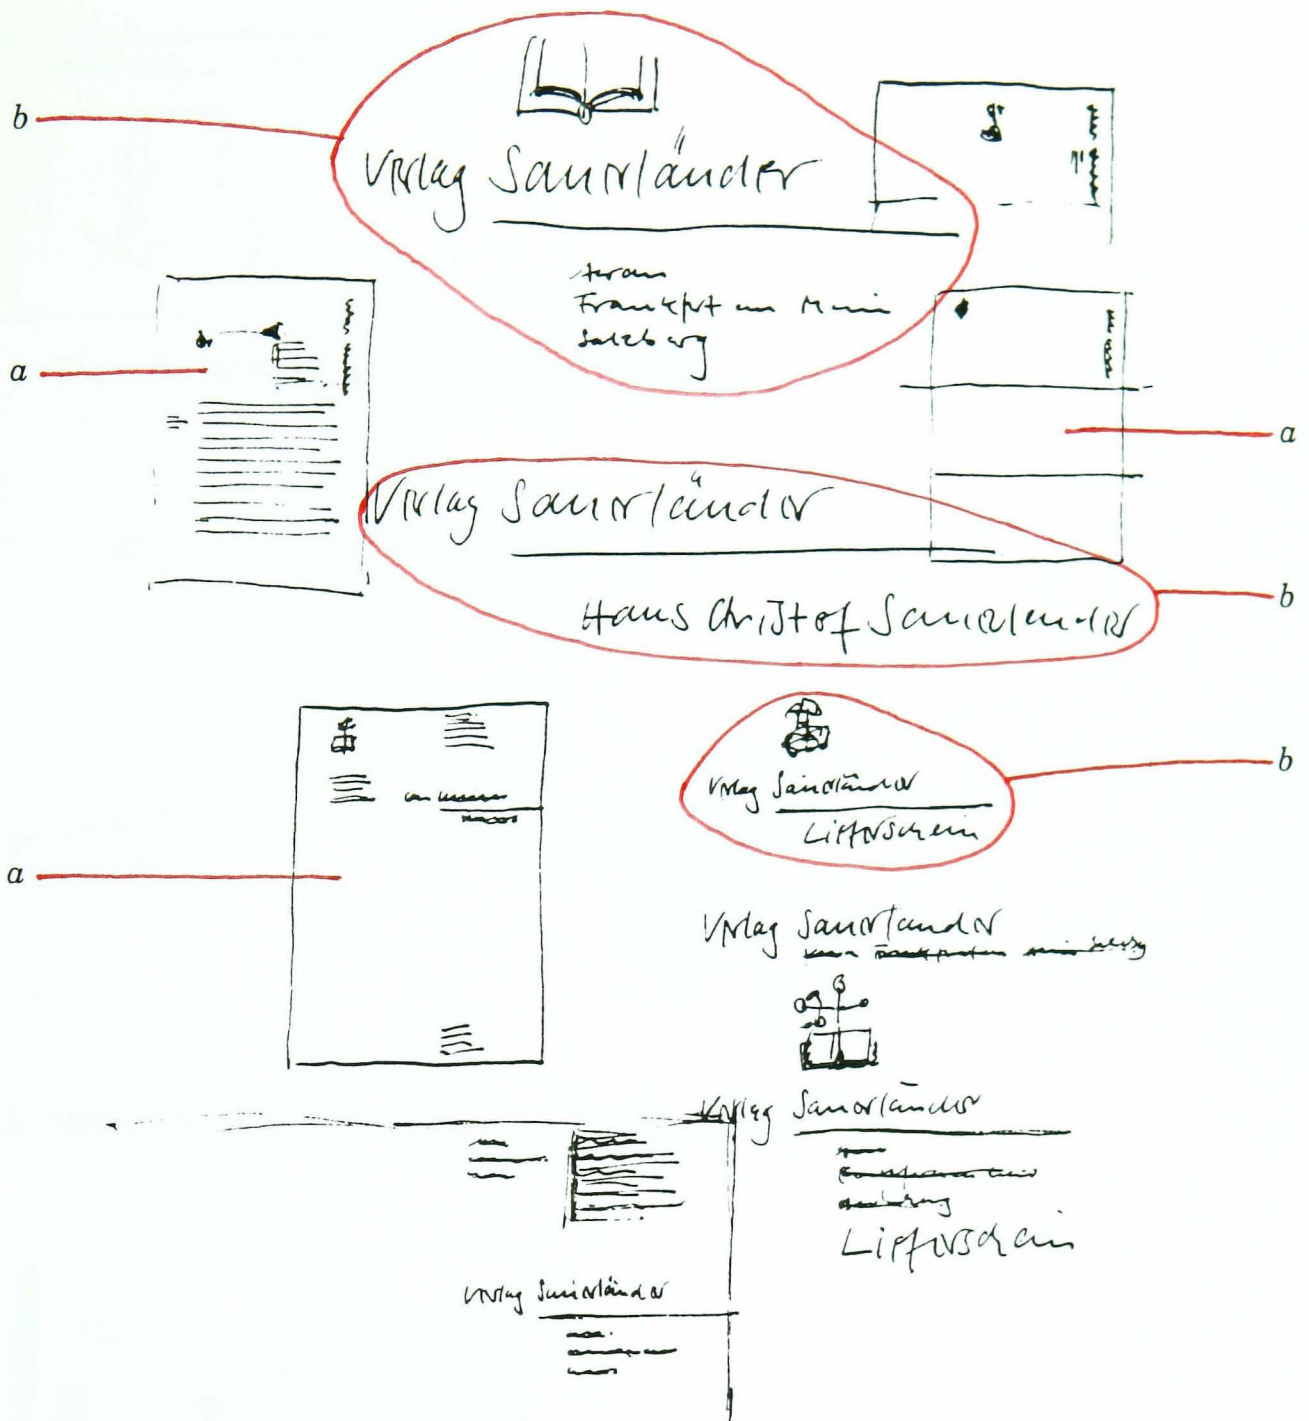 b
Verlag Sauerländer
Aarau
Frankfurt am Main
Salzburg
a
a
Verlag Sauerländer
b
Hans Christof Sauerländer
b
Verlag Sauerländer
Lieferschein
a
Verlag Sauerländer
Verlag Sauerländer
Lieferschein
Verlag Sauerländer